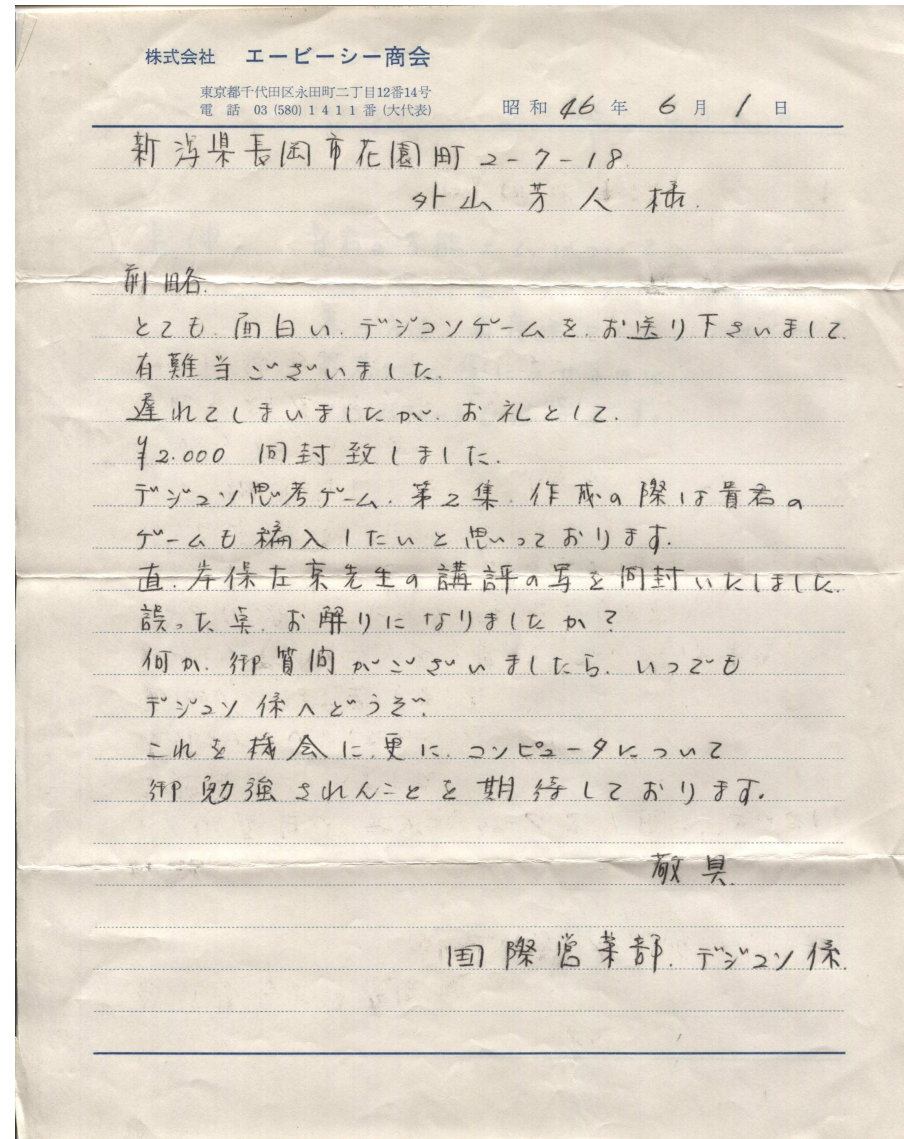 株式会社 エービーシー商会
東京都千代田区永田町二丁目12番14号
電話 03(580)1411番(大代表)
昭和46年6月1日
新潟県長岡市花園町2-7-18.
外山芳人様.
前略.
とても.面白い.デジコンゲームを.お送り下さいまして
有難当ございました.
遅れてしまいましたが.お礼として.
¥2.000 同封致しました.
デジコン思考ゲーム.第2集.作成の際は貴君の
ゲームも編入したいと思っております.
直.岸保左京先生の講評の写を同封いたしました.
誤った点.お解りになりましたか?
何か.御質問がございましたら.いつでも
デジコン係へどうぞ.
これを機会に.更に.コンピュータについて
御勉強されんことを期待しております.
敬具.
国際営業部.デジコン係.